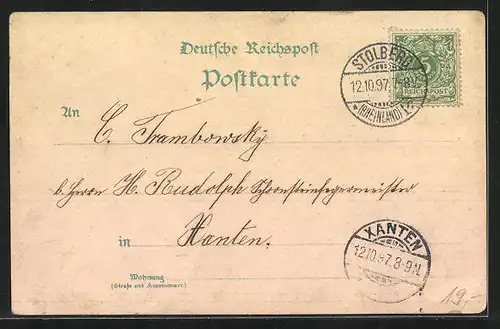 Deutsche Reichspost
Postkarte
STOLBERG
12.10.97. 7-8N
* (RHEINLAND) *
5
REICHSPOST
An
C. Trambowsky
b. Herrn H. Rudolph Schornsteinfegermeister
in Xanten.
XANTEN
12.10.97. 8-9N
Wohnung
(Straße und Hausnummer)
19,-